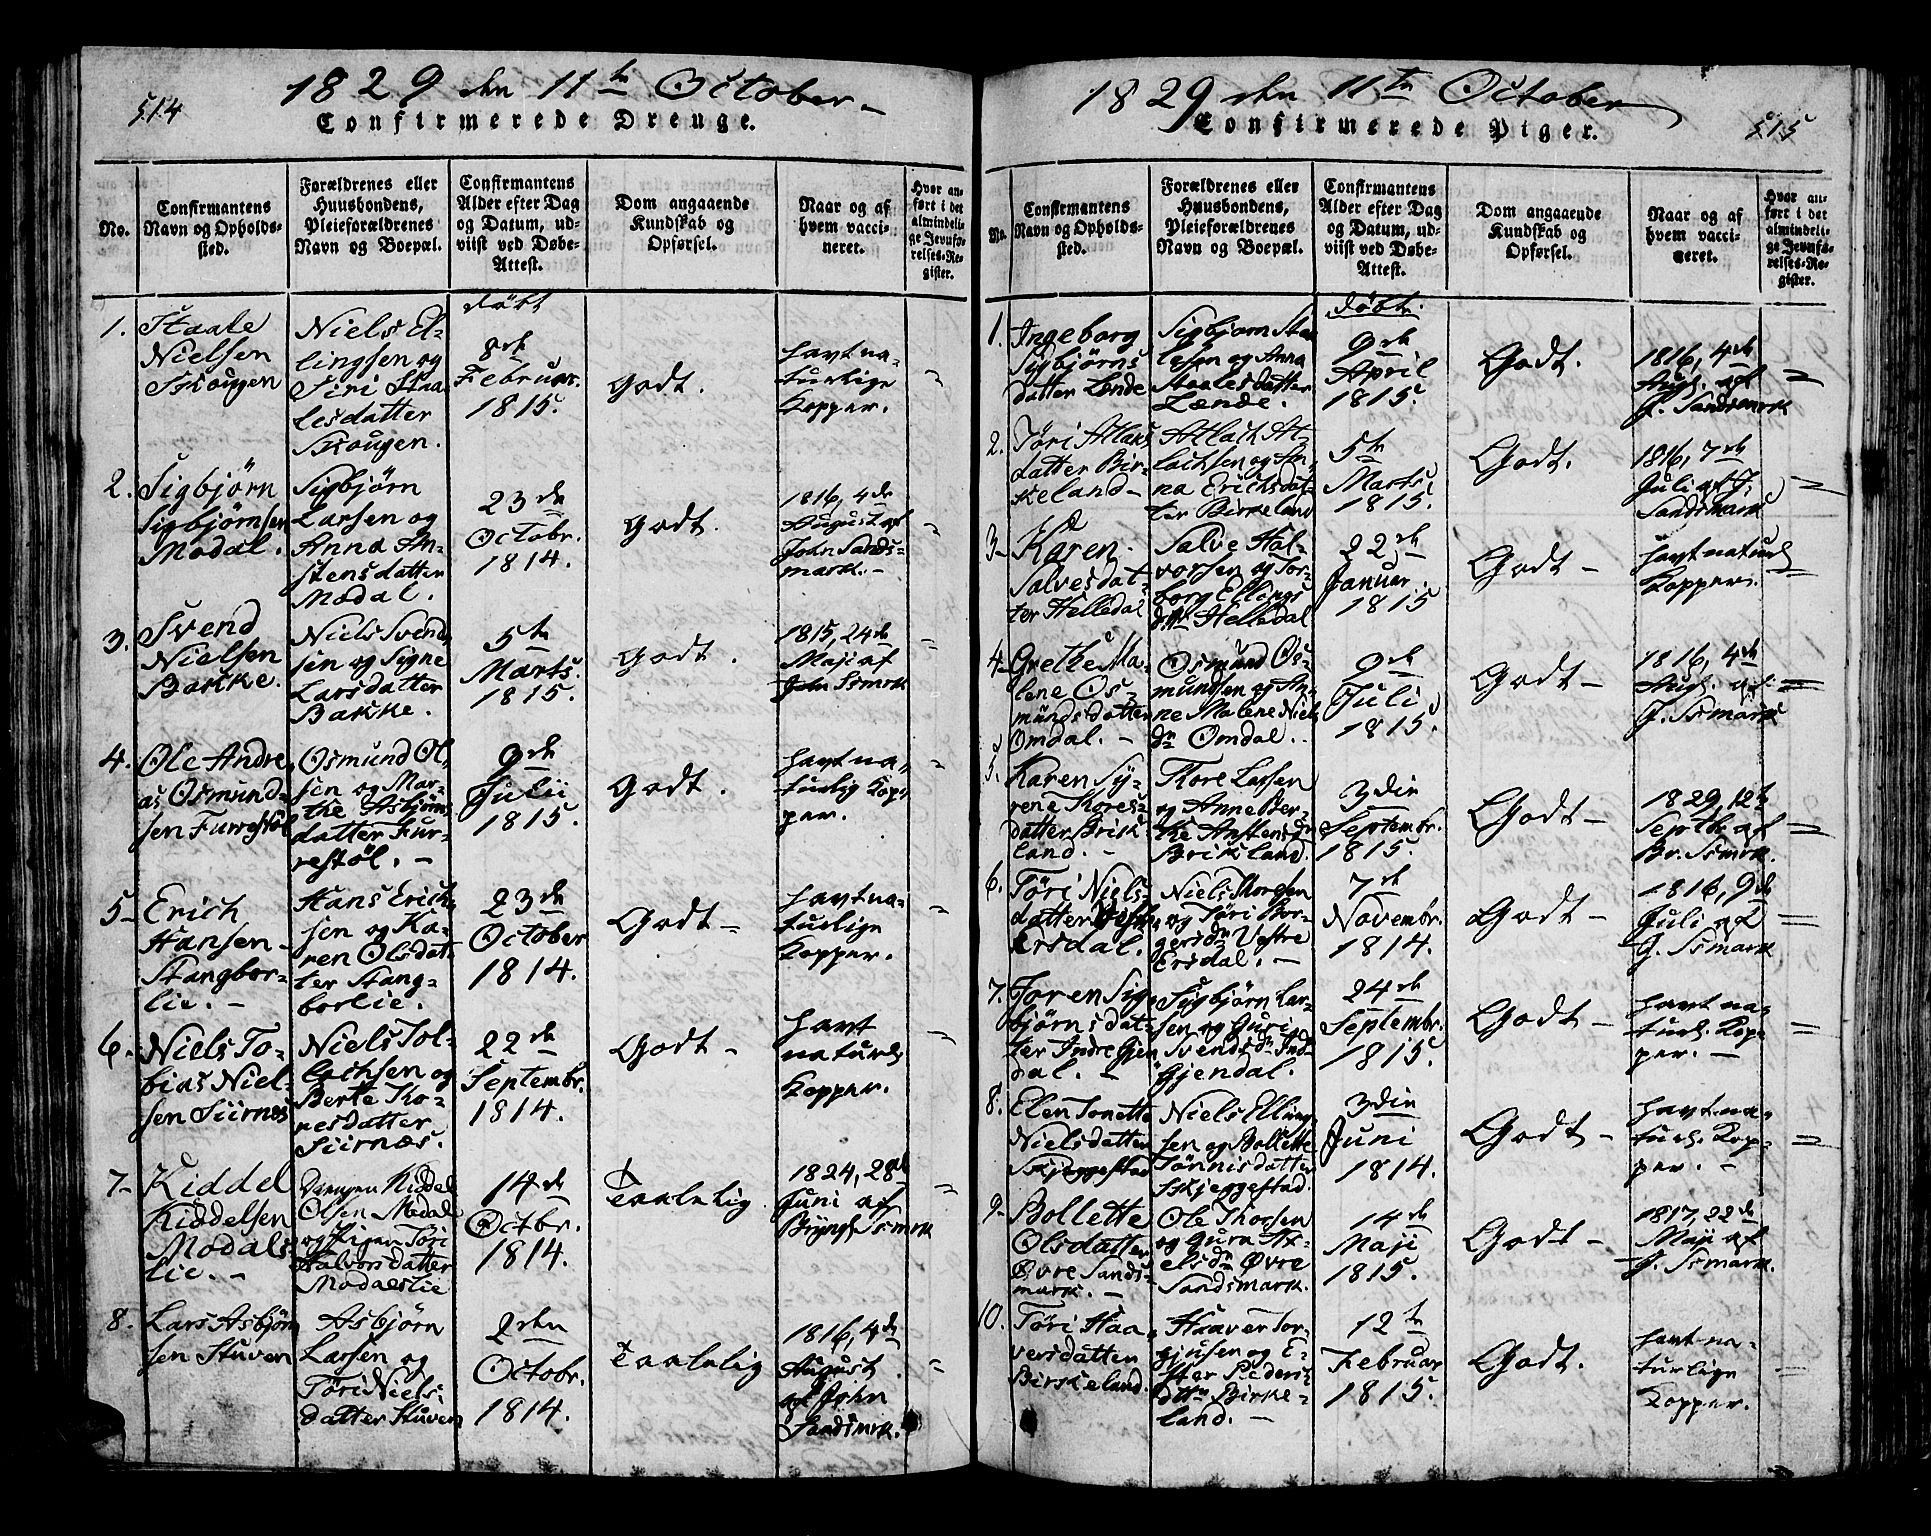 514
1829 den 11te October
Confirmerede Drenge.
No.
Confirmantens
Navn og Opholds-
sted.
Forældrenes eller
Huusbondens,
Pleieforældrenes
Navn og Boepæl.
Confirmantens
Alder efter Dag
og Datum, ud-
viist ved Døbe-
Attest.
Dom angaaende
Kundskab og
Opførsel.
Naar og af
hvem vacci-
neret.
Hvor an-
ført i det
almindeli-
ge Jevnfø-
relses-Re-
gister.
1.
Staale
Nielsen
Skougen
Niels El-
lingsen og
Siri Staa-
lesdatter
Skougen.
døbt
8de
Februar.
1815.
Godt.
havt na-
turlige
Kopper.
2.
Sigbjørn
Sigbjørnsen
Modal.
Sigbjørn
Larsen og
Anna An-
stensdatter
Modal.
23de
Octobr.
1814.
Godt.
1816, 4de
August af
John Sands-
mark.-
3.
Svend
Nielsen
Bakke.
Niels Svend-
sen og Signe
Larsdatter
Bakke.
5te
Marts.
1815.
Godt.
1815, 24de
Maji af
John Ssmrk
4.
Ole Andre-
as Osmund-
sen Furrestøl
Osmund Ol-
sen og Mar-
the Asbjørns
datter Fur-
restøl. -
9de
Julii
1815.
Godt.
havt na-
turlig Kop-
per.
5-
Erich
Hansen-
Stangbor-
lie. -
Hans Erich-
sen og Ka-
ren Olsdat-
ter Stang-
borlie.
23de
October
1814.
Godt-
havt na-
turlige
Kopper.
6.
Niels To-
bias Niel-
sen Siirnes
Niels Tol-
lachsen og
Berte Tho-
resdatter
Siirnæs.
22de
Septembr.
1814.
Godt -
havt
naturl:
Kopper.
7-
Kiddel
Kiddelsen
Modals-
lie. -
Drengen Kiddel
Olsen Modal
og Pigen Tøri
Halvorsdatter
Modalslie
14de
Octbr.
1814.
Taalelig
1824, 28de
Juni af
Ssmrk
8.
Lars Asbjørn
sen Stuven
Asbjørn
Larsen og
Tøri Niels-
datter Stuven
2den
Octobr.
1814.
Taalelig
1816, 4de
August
af John
Sandsmrk.
1829 den 11te October
515
Confirmerede Piger.
No.
Confirmantens
Navn og Opholds-
sted.
Forældrenes eller
Huusbondens,
Pleieforældrenes
Navn og Boepæl.
Confirmantens
Alder efter Dag
og Datum, ud-
viist ved Døbe-
Attest.
Dom angaaende
Kundskab og
Opførsel.
Naar og af
hvem vacci-
neret.
Hvor an-
ført i det
almindeli-
ge Jevnfø-
relses-Re-
gister.
1.
Ingeborg
Sigbjørns
datter Lende
Sigbjørn Staa
lesen og Anna
Staalesdatter
Lænde.
døbt.
9de
April
1815.
Godt.
1816, 4de
Augs. af
J. Sandsmrk
2.
Tøri Atlaks
datter Bir-
keland-
Atlach At-
lachsen og An-
na Erichsdat-
ter Birkeland
5te
Marts.
1815.
Godt.
1816, 7de
Juli af J.
Sandsmark
3-
Karen.
Salvesdat-
ter Helledal
Salve Hal-
vorsen og Tor-
borg Ellings
dtr Helledal
22de
Januar.
1815
Godt -
havt naturl
Kopper.
4-
Grethe Ma-
lene Os-
mundsdatter
Omdal. -
Osmund Os-
mundsen og An-
ne Malene Niels
dtr Omdal.
9de
Juli
1815.
Godt -
1816, 4de
Augs. af
J. Ssmark
5.
Karen Sy-
rene Thores-
datter Brisk
land. -
Thore Larsen
og Anne Ber-
the Anstensdtr
Briksland.
3die
Septembr.
1815.
Godt -
1829, 12te
Septbr af
Br. Ssmrk.
6.
Tøri Niels-
datter Vestre
Ersdal.
Niels Thorsen
og Tøri Bor-
gersdtr Vestre
Ersdal. -
7de
Novembr.
1814.
Godt -
1816, 9de
Juli af
J. Ssmark
7.
Joren Sig-
bjørnsdat-
ter Indre Gjen
dal. -
Sigbjørn Lar-
sen og Guri
Svendsdtr Ind-
Gjendal.
24de
Septembr.
1815.
Godt -
havt na-
turl. Kop-
per. -
8.
Elen Tonette
Nielsdatter
Skjeggestad
Niels Elling
sen og Bollette
Tønnisdatter
Skjeggestad.
3die
Juni
1814.
Godt -
havt na-
turl. Kop-
per. -
9-
Bollette
Olsdatter
Øvre Sands-
mark. -
Ole Thorsen
og Gura Ax-
elsdtr Øvre
Sandsmark.
14de
Maji
1815.
Godt -
1817, 22de
Maji af
J. Ssmark.
10.
Tøri Haa-
versdatter
Birkeland.
Haaver Tor-
gjusen og E-
ster Peders
dttr Birke-
land. -
12te
Februar
1815.
Godt.
havt na-
turlige
Kopper.